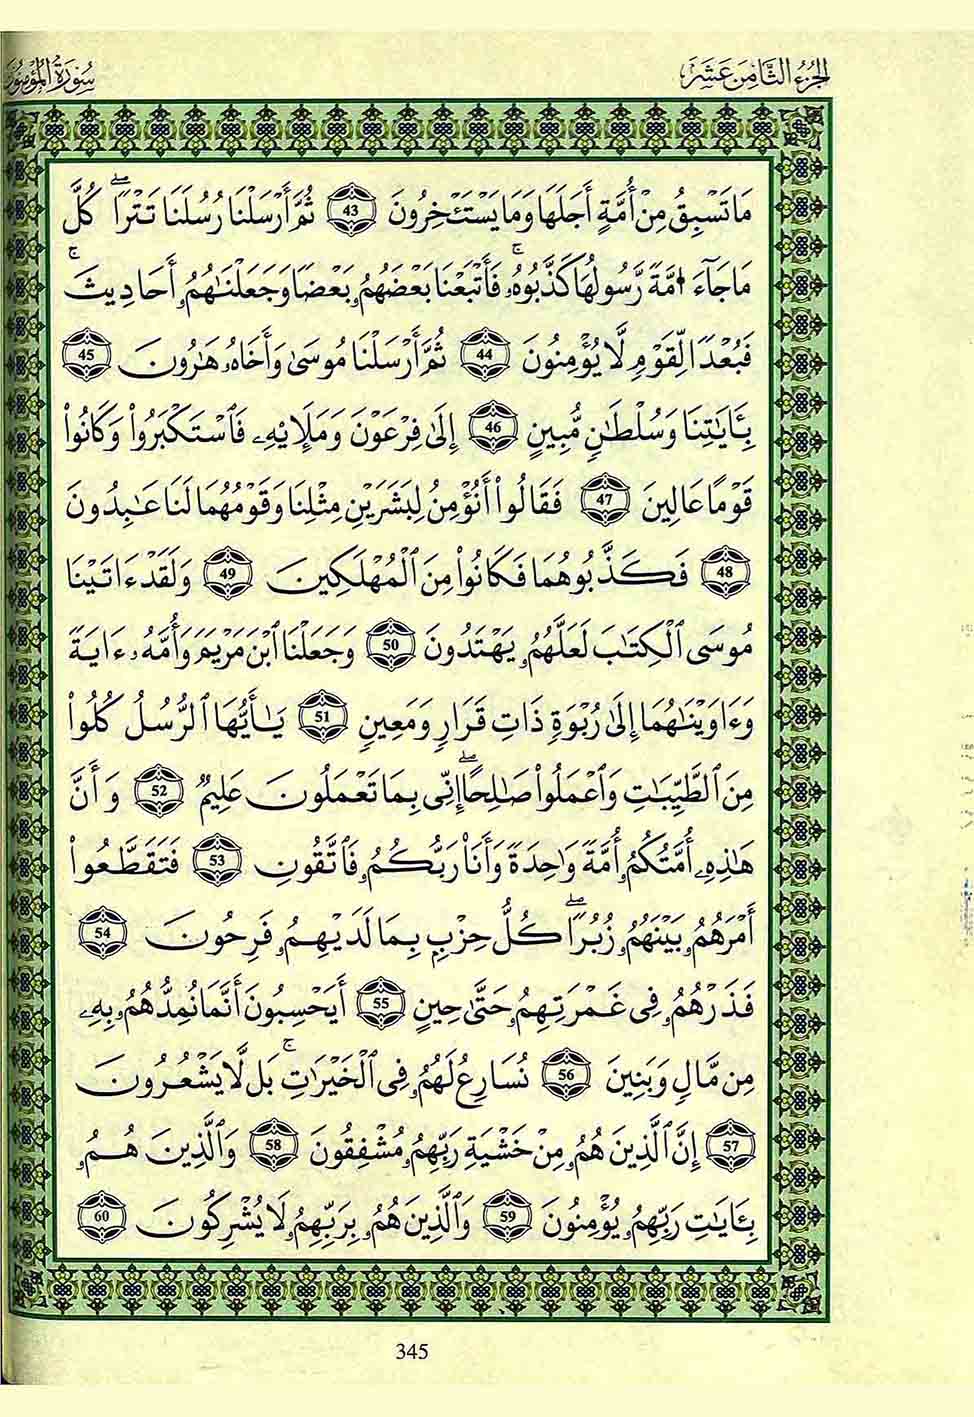 الجزء الثامن عشر
سورة المؤمنون
مَا تَسْبِقُ مِنْ أُمَّةٍ أَجَلَهَا وَمَا يَسْتَـْٔخِرُونَ 43 ثُمَّ أَرْسَلْنَا رُسُلَنَا تَتْرًاۖ كُلَّ
مَا جَآءَ اُ۬مَّةً رَّسُولُهَا كَذَّبُوهُۥۚ فَأَتْبَعْنَا بَعْضَهُمُۥ بَعْضًا وَجَعَلْنَٰهُمُۥ أَحَادِيثَۚ
فَبُعْدًا لِّقَوْمٍ لَّا يُؤْمِنُونَ 44 ثُمَّ أَرْسَلْنَا مُوسَىٰ وَأَخَاهُۥ هَٰرُونَ 45
بِـَٔايَٰتِنَا وَسُلْطَٰنٍ مُّبِينٍ 46 إِلَىٰ فِرْعَوْنَ وَمَلَإِيْهِۦ فَٱسْتَكْبَرُواْ وَكَانُواْ
قَوْمًا عَالِينَ 47 فَقَالُواْ أَنُؤْمِنُ لِبَشَرَيْنِ مِثْلِنَا وَقَوْمُهُمَا لَنَا عَٰبِدُونَ
48 فَكَذَّبُوهُمَا فَكَانُواْ مِنَ ٱلْمُهْلَكِينَ 49 وَلَقَدْ ءَاتَيْنَا
مُوسَى ٱلْكِتَٰبَ لَعَلَّهُمُۥ يَهْتَدُونَ 50 وَجَعَلْنَا ٱبْنَ مَرْيَمَ وَأُمَّهُۥ ءَايَةً
وَءَاوَيْنَٰهُمَا إِلَىٰ رُبْوَةٍ ذَاتِ قَرَارٍ وَمَعِينٍ 51 يَٰٓأَيُّهَا ٱلرُّسُلُ كُلُواْ
مِنَ ٱلطَّيِّبَٰتِ وَٱعْمَلُواْ صَٰلِحًاۖ إِنِّى بِمَا تَعْمَلُونَ عَلِيمٌ 52 وَأَنَّ
هَٰذِهِۦ أُمَّتُكُمُۥ أُمَّةً وَٰحِدَةً وَأَنَا۠ رَبُّكُمُۥ فَٱتَّقُونِ 53 فَتَقَطَّعُواْ
أَمْرَهُمُۥ بَيْنَهُمُۥ زُبُرًاۖ كُلُّ حِزْبٍ بِمَا لَدَيْهِمُۥ فَرِحُونَ 54
فَذَرْهُمُۥ فِى غَمْرَتِهِمُۥ حَتَّىٰ حِينٍ 55 أَيَحْسِبُونَ أَنَّمَا نُمِدُّهُمُۥ بِهِۦ
مِن مَّالٍ وَبَنِينَ 56 نُسَارِعُ لَهُمُۥ فِى ٱلْخَيْرَٰتِۚ بَل لَّا يَشْعُرُونَ
57 إِنَّ ٱلَّذِينَ هُمُۥ مِنْ خَشْيَةِ رَبِّهِمُۥ مُشْفِقُونَ 58 وَٱلَّذِينَ هُمُۥ
بِـَٔايَٰتِ رَبِّهِمُۥ يُؤْمِنُونَ 59 وَٱلَّذِينَ هُمُۥ بِرَبِّهِمُۥ لَا يُشْرِكُونَ 60
345